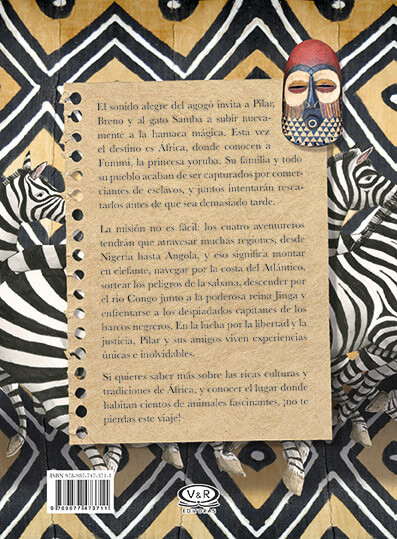 El sonido alegre del agogó invita a Pilar,
Breno y al gato Samba a subir nueva-
mente a la hamaca mágica. Esta vez
el destino es África, donde conocen a
Fummi, la princesa yoruba. Su familia y todo
su pueblo acaban de ser capturados por comer-
ciantes de esclavos, y juntos intentarán resca-
tarlos antes de que sea demasiado tarde.
La misión no es fácil: los cuatro aventureros
tendrán que atravesar muchas regiones, desde
Nigeria hasta Angola, y eso significa montar
en elefante, navegar por la costa del Atlántico,
sortear los peligros de la sabana, descender por
el río Congo junto a la poderosa reina Jinga y
enfrentarse a los despiadados capitanes de los
barcos negreros. En la lucha por la libertad y la
justicia, Pilar y sus amigos viven experiencias
únicas e inolvidables.
Si quieres saber más sobre las ricas culturas y
tradiciones de África, y conocer el lugar donde
habitan cientos de animales fascinantes, ¡no te
pierdas este viaje!
ISBN 978-987-747-371-1
9789877473711
V&R
EDITORAS